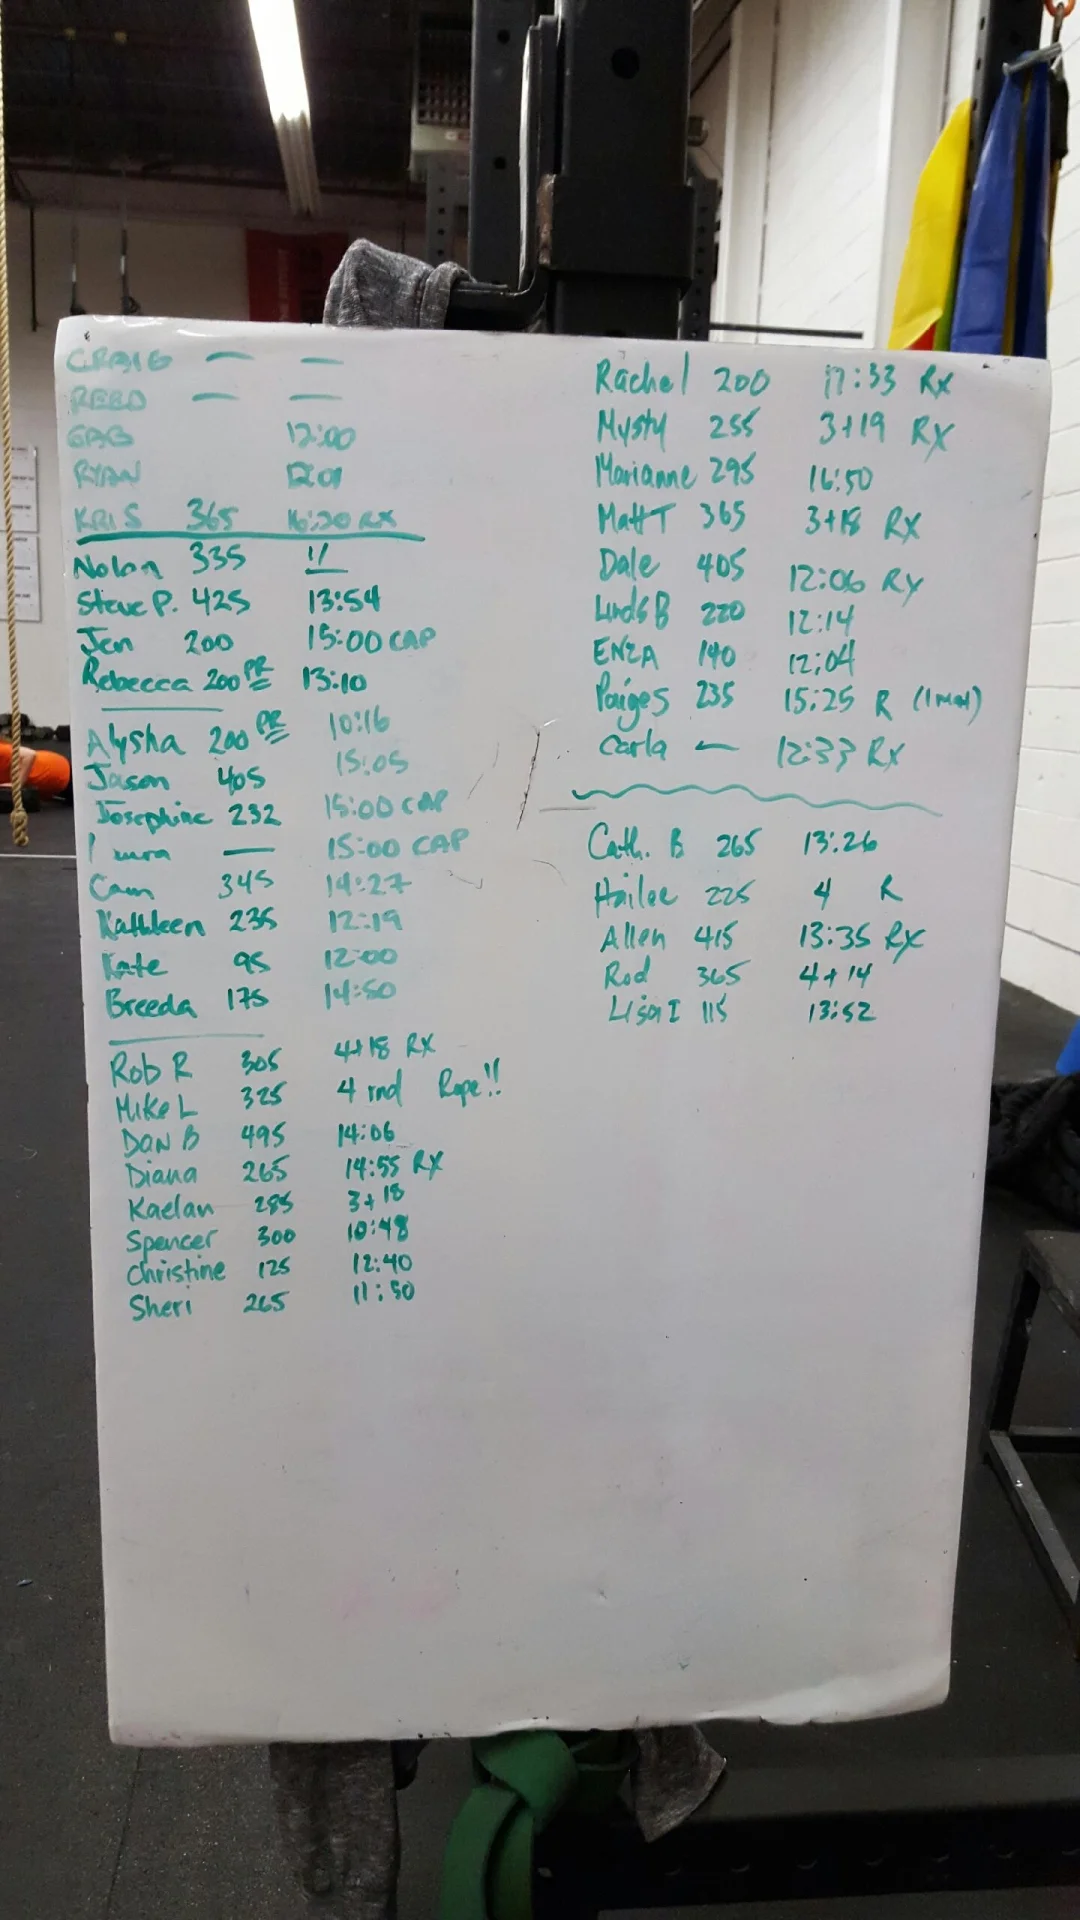 CRAIG — —
REED — —
GAB 12:00
RYAN 12:01
KRIS 365 16:30 RX
Nolan 335
Steve P. 425 13:54
Jen 200 15:00 CAP
Rebecca 200 PR 13:10
Alysha 200 PR 10:16
Jason 405 15:05
Josephine 232 15:00 CAP
— 15:00 CAP
Cam 345 14:27
Kathleen 235 12:19
Kate 95 12:00
Breeda 175 14:50
Rob R 305 4+18 RX
Mike L 325 4 rnd Rope!!
DAN B 495 14:06
Diana 265 14:55 RX
Kaelan 285 3+18
Spencer 300 10:48
Christine 125 12:40
Sheri 265 11:50
Rachel 200 17:33 Rx
Mysty 255 3+19 RX
Marianne 295 16:50
Matt T 365 3+18 RX
Dale 405 12:06 RX
Linds B 220 12:14
ENZA 140 12:04
Paige S 235 15:25 R
Carla — 12:33 RX
Cath. B 265 13:26
Hailee 225 4 R
Allen 415 13:35 RX
Rod 365 4+14
Lisa I 115 13:52